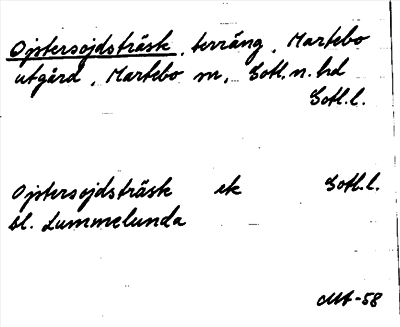 Ojstersojdsträsk, terräng, Martebo
utgård, Martebo sn, Gotl. n. hd
Gotl. l.
Ojstersojdsträsk ek Gotl. l.
bl. Lummelunda
-58